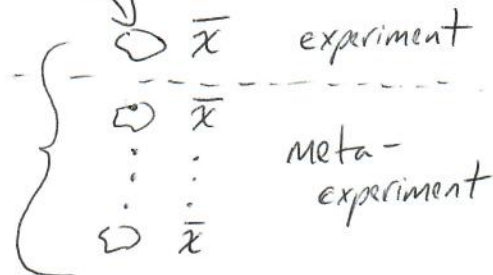 x̄ experiment
x̄
meta-
experiment
x̄